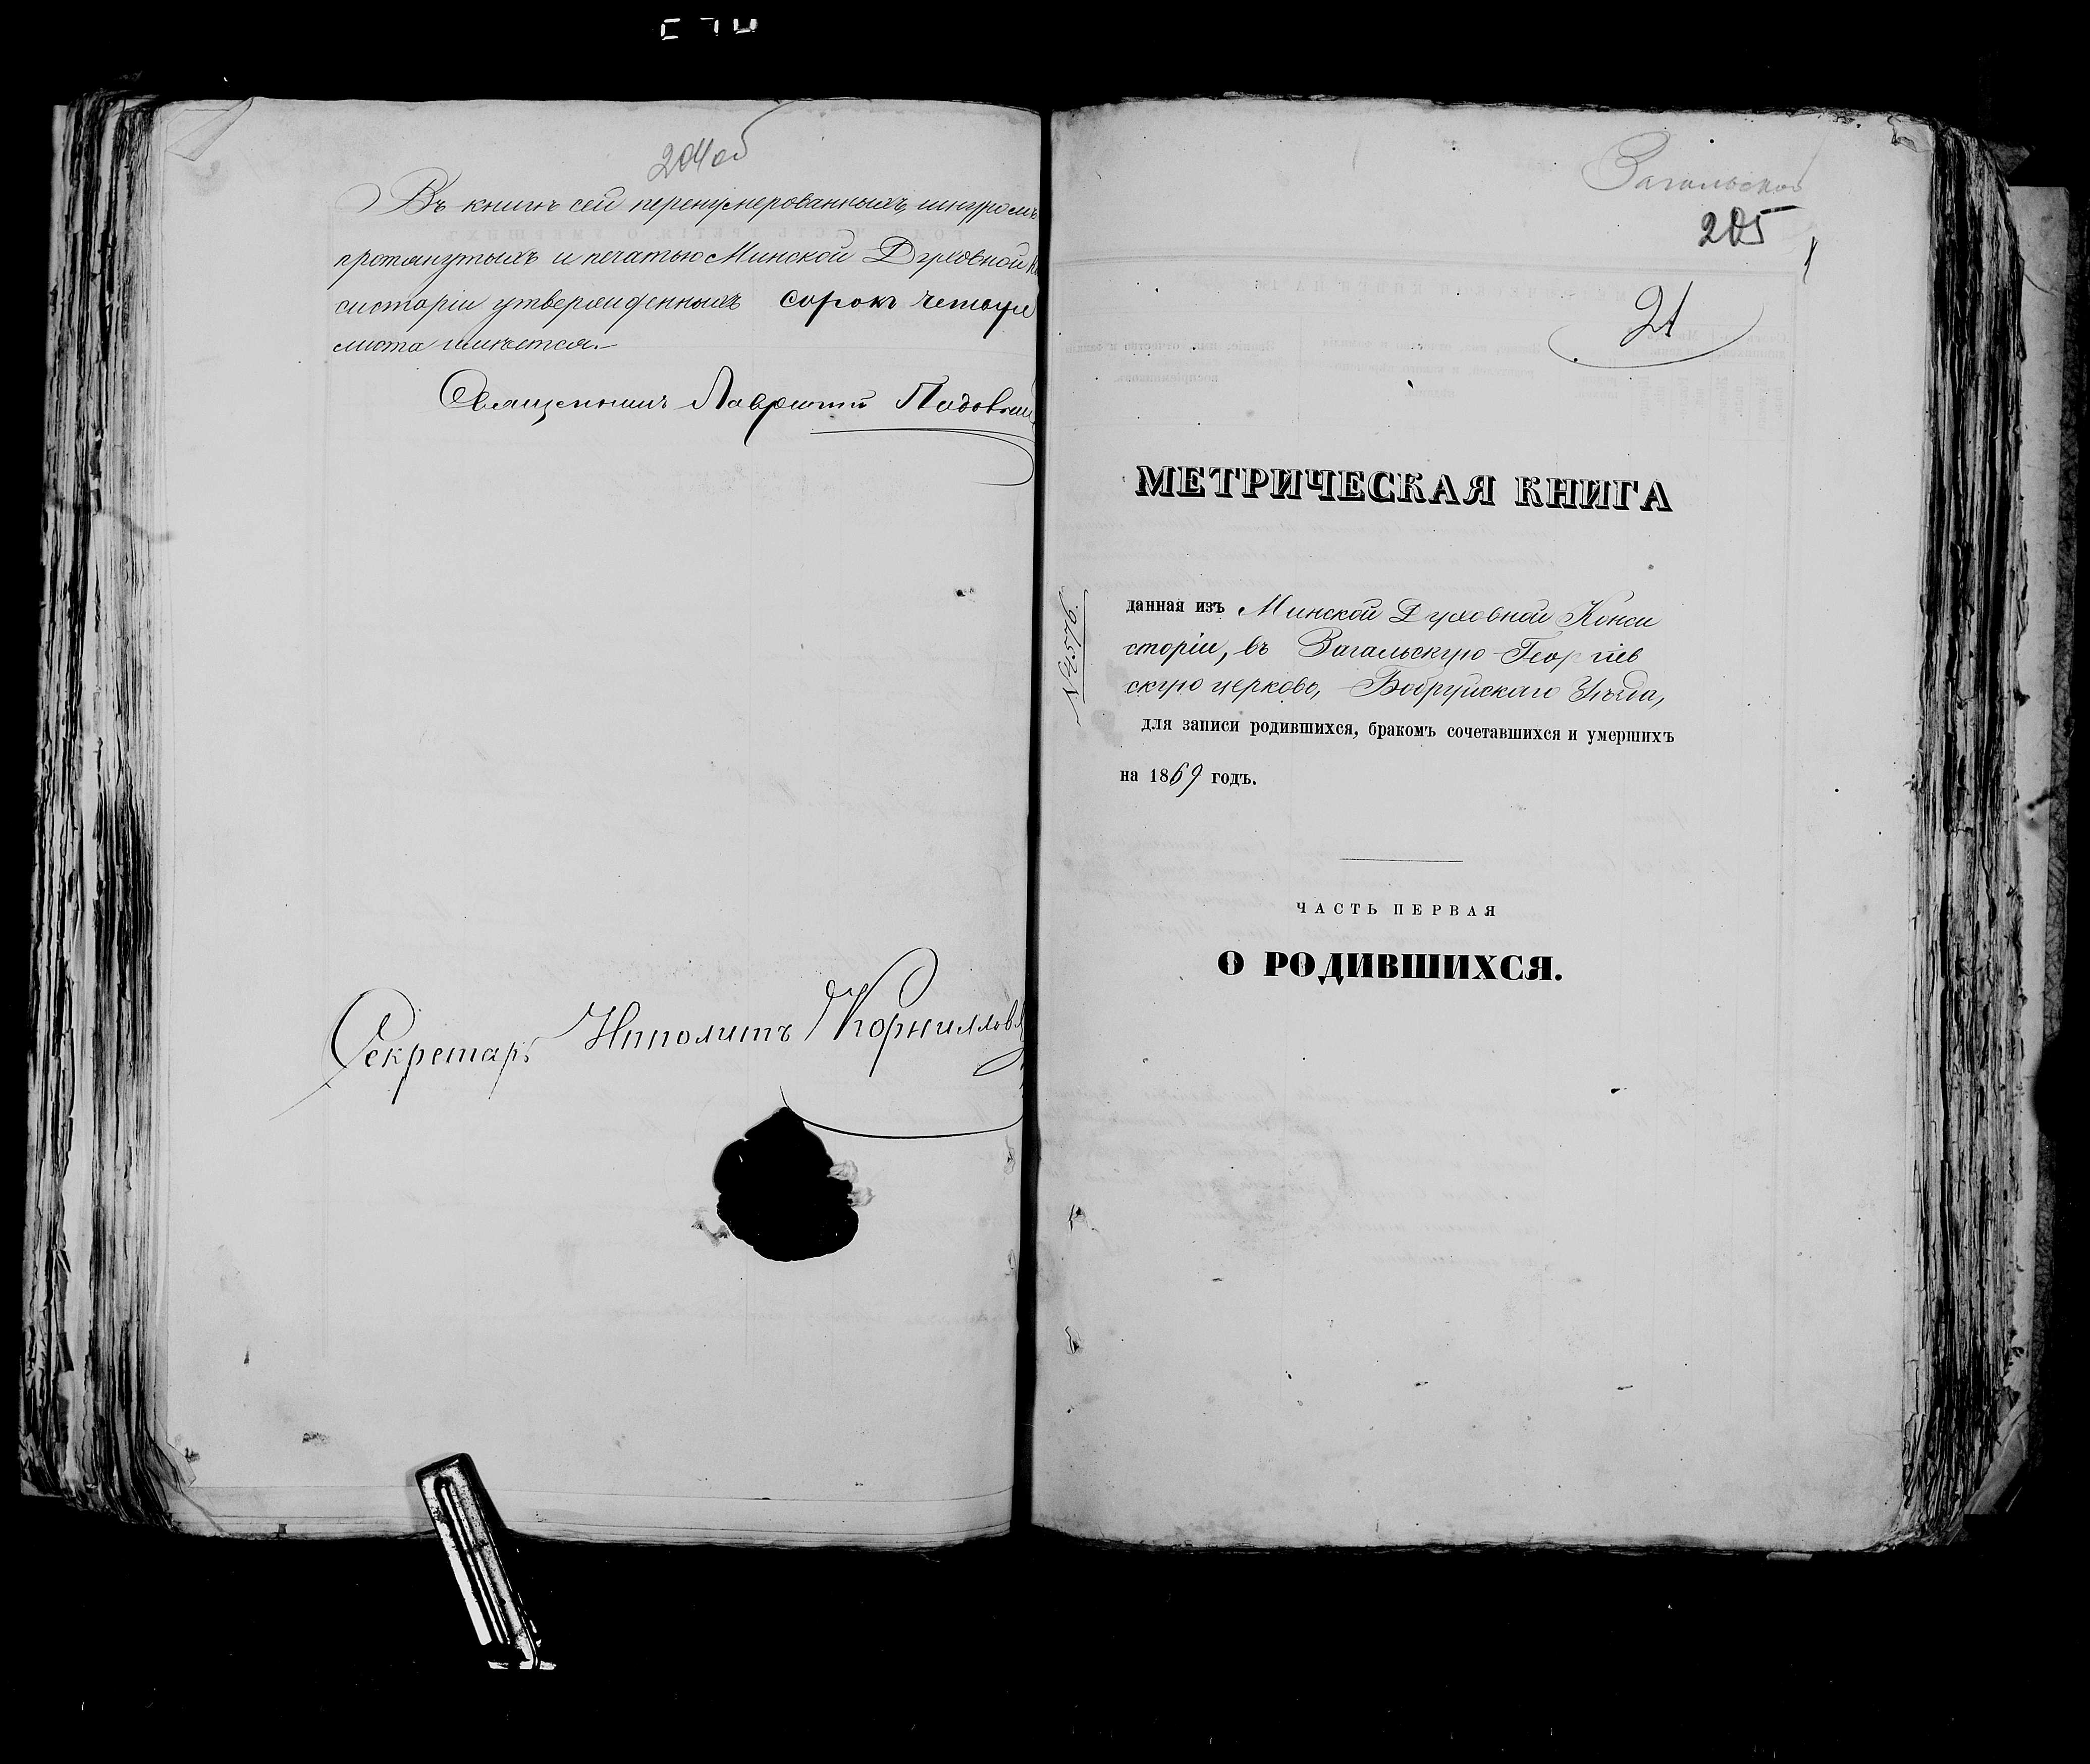 204об
Въ книгѣ сей перенумерованныхъ, шнуромъ
протянутыхъ и печатью Минской Духовной Ко
систоріи утвержденныхъ сорокъ четыре
листа имѣется.
Священникъ Лаврентій
Секретарь Иполитъ Корниллов
Загальской
205
21
МЕТРИЧЕСКАЯ КНИГА
№ 4576.
данная изъ Минской Духовной Конси
сторіи, въ Загальскую Георгіев
скую церковь, Бобруйскаго Уѣзда,
для записи родившихся, бракомъ сочетавшихся и умершихъ
на 1869 годъ.
ЧАСТЬ ПЕРВАЯ
О РОДИВШИХСЯ.